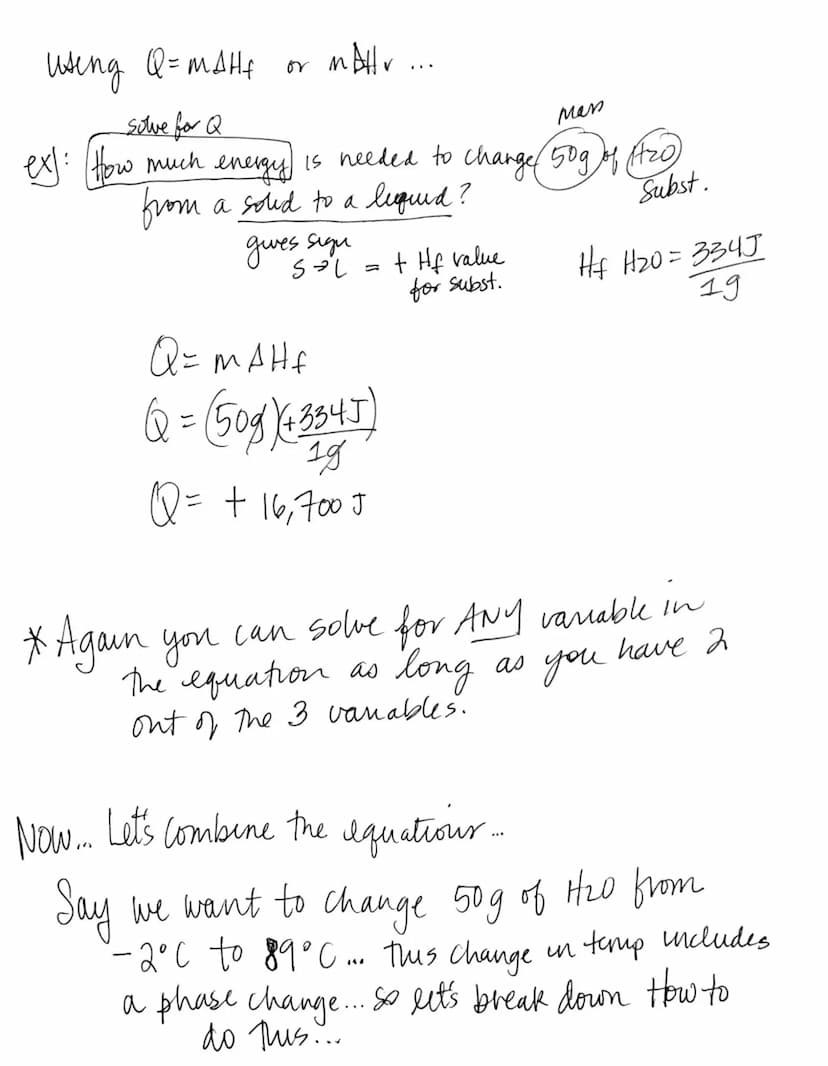 using Q=mΔHf or mΔHv ...
solve for Q
mass
ex): How much energy is needed to change 50g of H2O
subst.
from a solid to a liquid?
gives sign
S→L = + Hf value
for subst.
Hf H2O = 334J
1g
Q= mΔHf
Q = (50g)(+334J)
1g
Q= + 16,700 J
* Again you can solve for ANY variable in
the equation as long as you have 2
out of the 3 variables.
Now... Let's combine the equations...
Say we want to change 50g of H2O from
-2°C to 89°C... this change in temp includes
a phase change... so let's break down How to
do this...